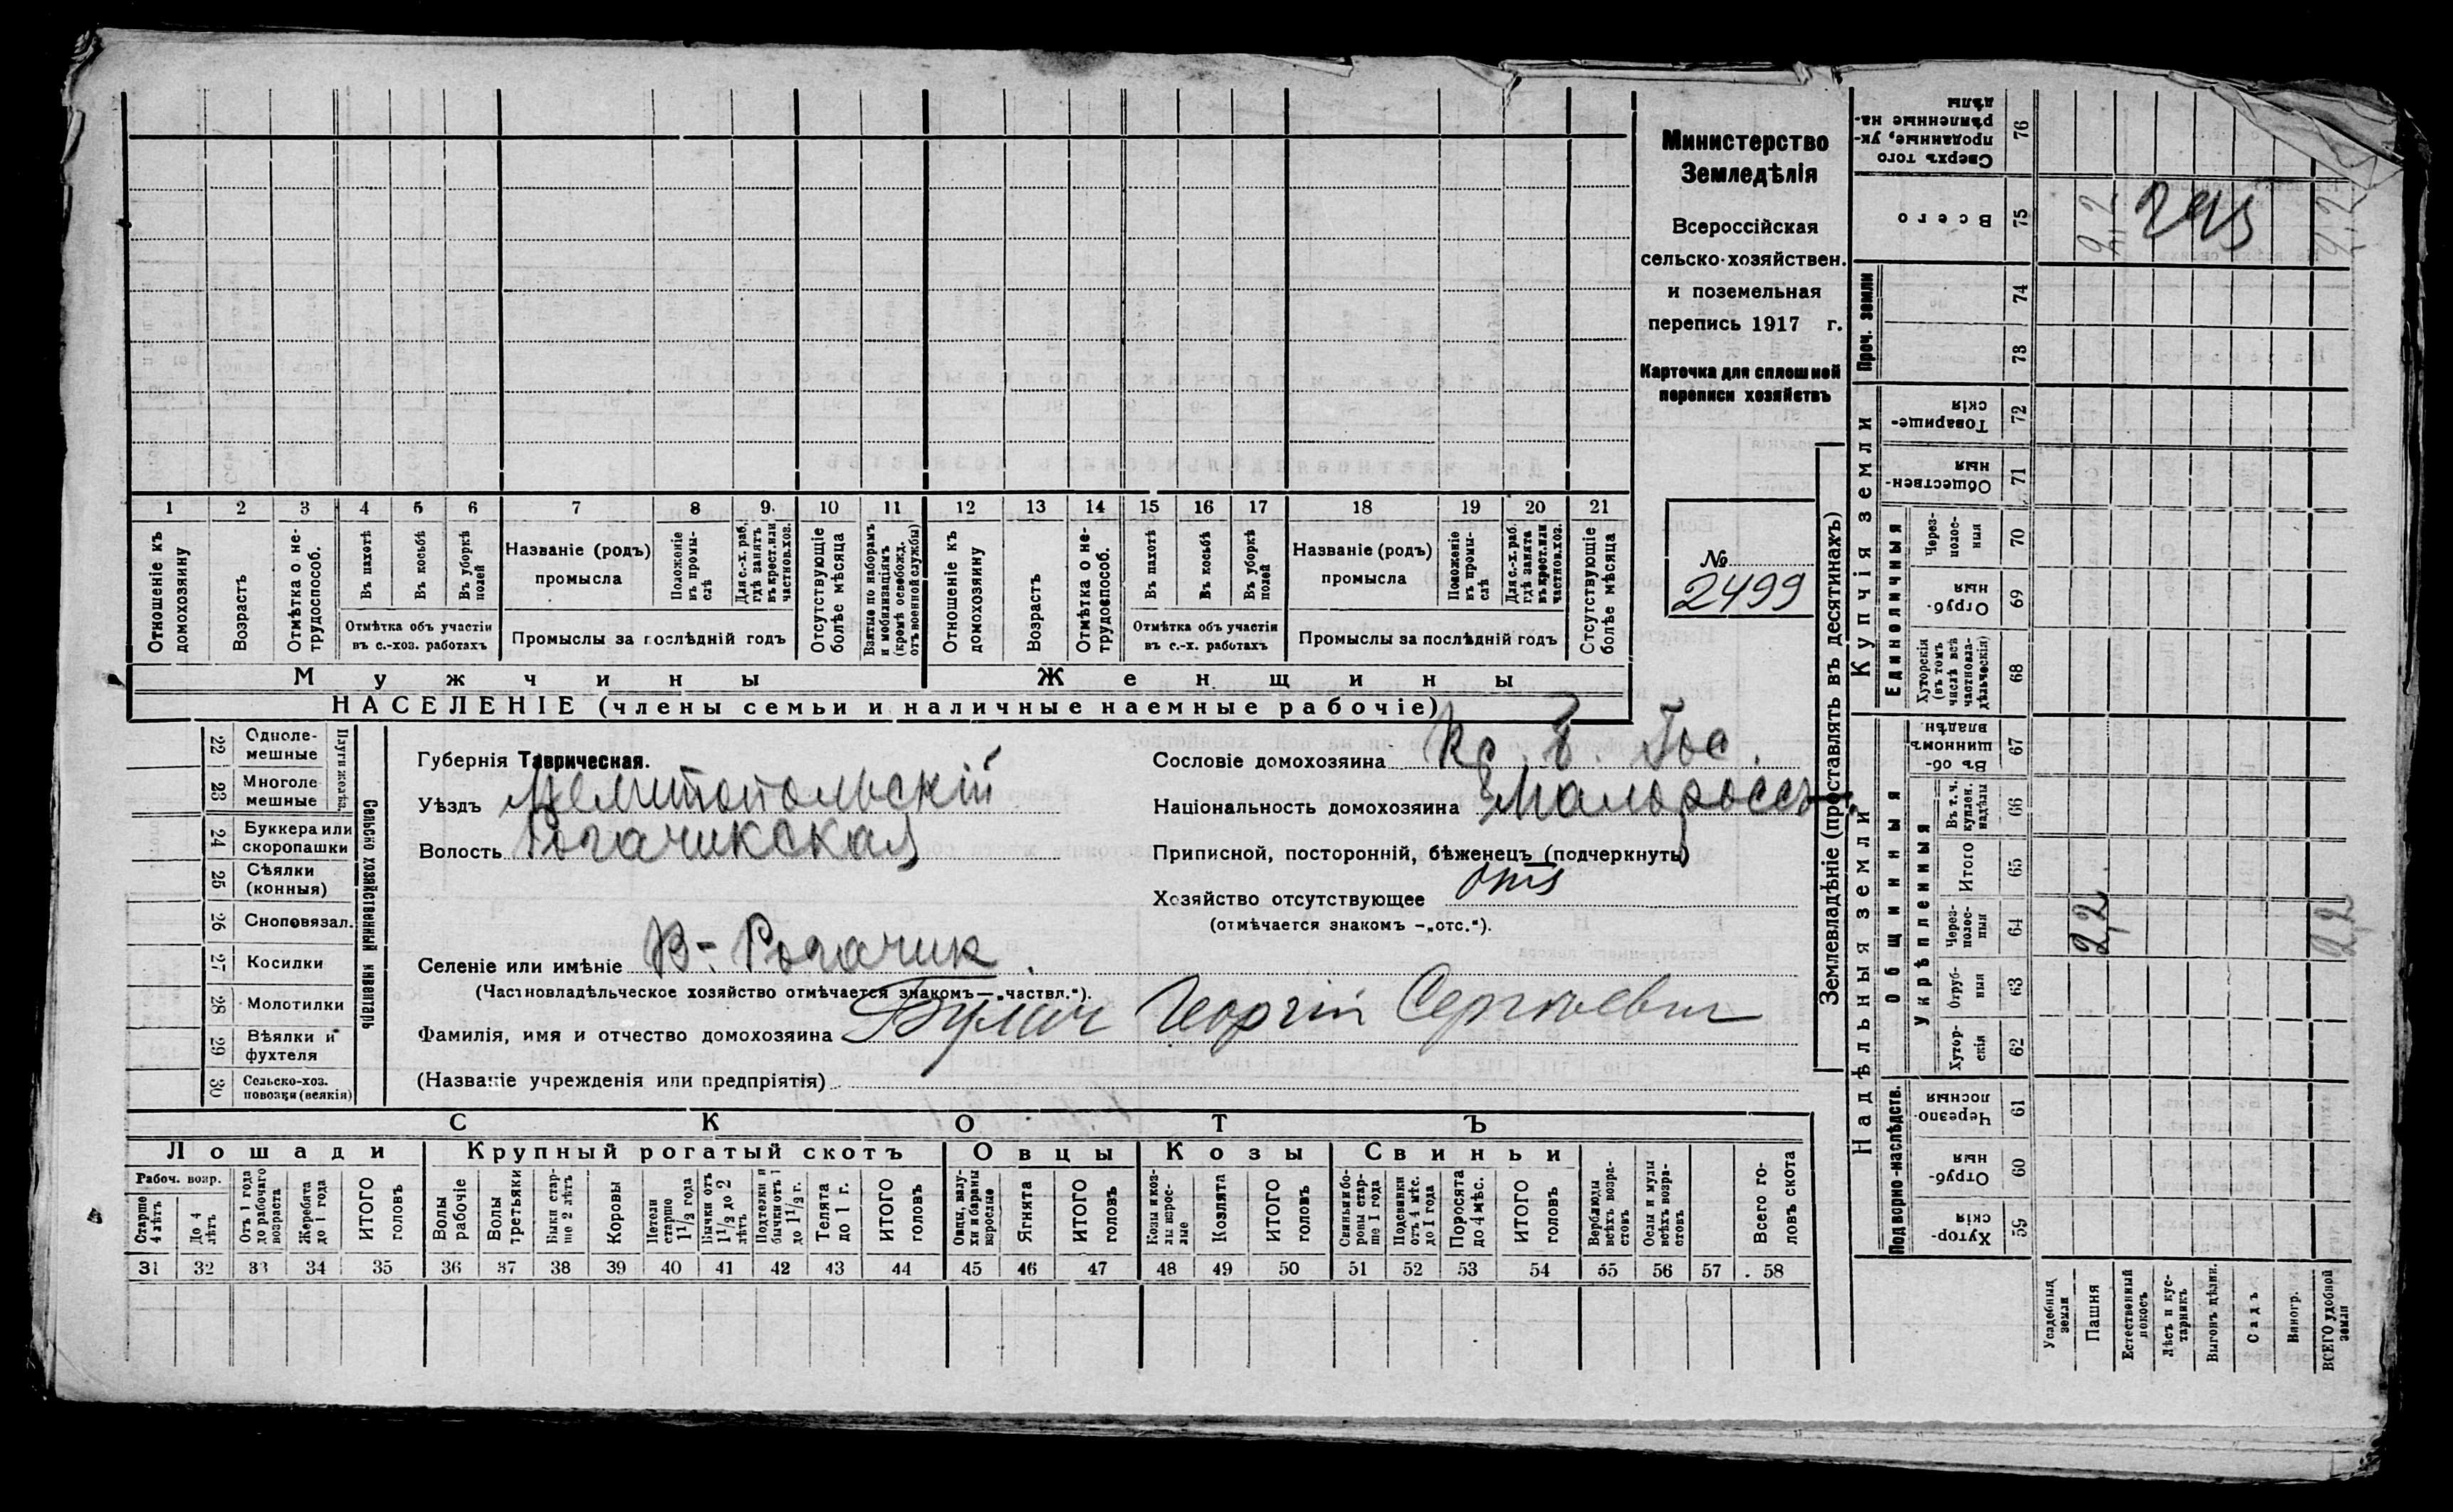 Министерство
Земледѣлія
Всероссійская
сельско-хозяйствен.
и поземельная
перепись 1917 г.
Карточка для сплошной
переписи хозяйствъ
№
2499
1 2 3 4 5 6 7 8 9. 10 11 12 13 14 15 16 17 18 19 20 21
Отношеніе къ домохозяину
Возрастъ
Отмѣтка о не-трудоспособ.
Въ пахотѣ
Въ косьбѣ
Въ уборкѣ полей
Отмѣтка объ участіи
въ с.-хоз. работахъ
Названіе (родъ)
промысла
Положеніе въ промы-слѣ
Для с.-х. раб. гдѣ занятъ въ крест. или частнов. хоз.
Промыслы за послѣдній годъ
Отсутствующіе болѣе мѣсяца
Взятые по наборамъ и мобилизаціямъ (кромѣ освобожд. отъ военной службы)
Отношеніе къ домохозяину
Возрастъ
Отмѣтка о не-трудоспособ.
Въ пахотѣ
Въ косьбѣ
Въ уборкѣ полей
Отмѣтка объ участіи
въ с.-х. работахъ
Названіе (родъ)
промысла
Положеніе въ промы-слѣ
Для с.-х. раб. гдѣ занята въ крест. или частнов. хоз.
Промыслы за послѣдній годъ
Отсутствующіе болѣе мѣсяца
Мужчины
Женщины
НАСЕЛЕНІЕ (члены семьи и наличные наемные рабочіе)
22 Одноле-мешные
23 Многоле мешные
24 Буккера или скоропашки
25 Сѣялки (конныя)
26 Сноповязал.
27 Косилки
28 Молотилки
29 Вѣялки и фухтеля
30 Сельско-хоз. повозки (всякія)
Сельско хозяйственный инвентарь
Губернія Таврическая.
Уѣздъ Мелитопольскій
Волость Рогачикская
Селеніе или имѣніе В-Рогачик
(Частновладѣльческое хозяйство отмѣчается знакомъ—„частвл.“).
Фамилія, имя и отчество домохозяина Булич Георгій Сергѣевич
(Названіе учрежденія или предпріятія)
Сословіе домохозяина Кр. б. Гос.
Національность домохозяина Малороссъ
Приписной, посторонній, бѣженецъ (подчеркнуть)
Хозяйство отсутствующее отс
(отмѣчается знакомъ —„отс.“).
СКОТЪ
Лошади
Крупный рогатый скотъ
Овцы
Козы
Свиньи
Рабоч. возр.
Старше 4 лѣтъ
До 4 лѣтъ
Отъ 1 года до рабочаго возраста
Жеребята до 1 года
ИТОГО головъ
Волы рабочіе
Волы третьяки
Быки стар-ше 2 лѣтъ
Коровы
Нетели старше 1 1/2 года
Бычки отъ 1 1/2 до 2 лѣтъ
Подтелки и бычки отъ 1 до 1 1/2 г.
Телята до 1 г.
ИТОГО головъ
Овцы, валу-хи и бараны взрослые
Ягнята
ИТОГО головъ
Козы и коз-лы взрос-лые
Козлята
ИТОГО головъ
Свиньи и бо-ровы стар-ше 1 года
Подсвинки отъ 4 мѣс. до 1 года
Поросята до 4 мѣс.
ИТОГО головъ
Верблюды всѣхъ возра-стовъ
Ослы и мулы всѣхъ возра-стовъ
Всего го-ловъ скота
31 32 33 34 35 36 37 38 39 40 41 42 43 44 45 46 47 48 49 50 51 52 53 54 55 56 57 58
Землевладѣніе (проставлять въ десятинахъ)
Купчія земли
Надѣльныя земли
Сверхъ того проданные, ук-рѣпленные на-дѣлы 76
Всего 75
Проч. земли
74
73
Товарище-скія 72
Обществен-ныя 71
Единоличныя
Через-полос-ныя 70
Отруб-ныя 69
Хуторскія (въ томъ числѣ всѣ частновла-дѣльческія) 68
Общинныя
Въ об-щинномъ владѣн. 67
Укрѣпленныя
Въ т. ч. куплен. надѣлы 66
Итого 65
Через-полос-ныя 64
Отруб-ныя 63
Хутор-скія 62
Подворно-наслѣдств.
Черезпо-лосныя 61
Отруб-ныя 60
Хутор-скія 59
Усадебныя земли
Пашня
Естественный покосъ
Лѣсъ и кус-тарникъ
Выгонъ дѣлим.
Садъ
Виногр.
ВСЕГО удобной земли
2,2
2,2
2,2
2,2